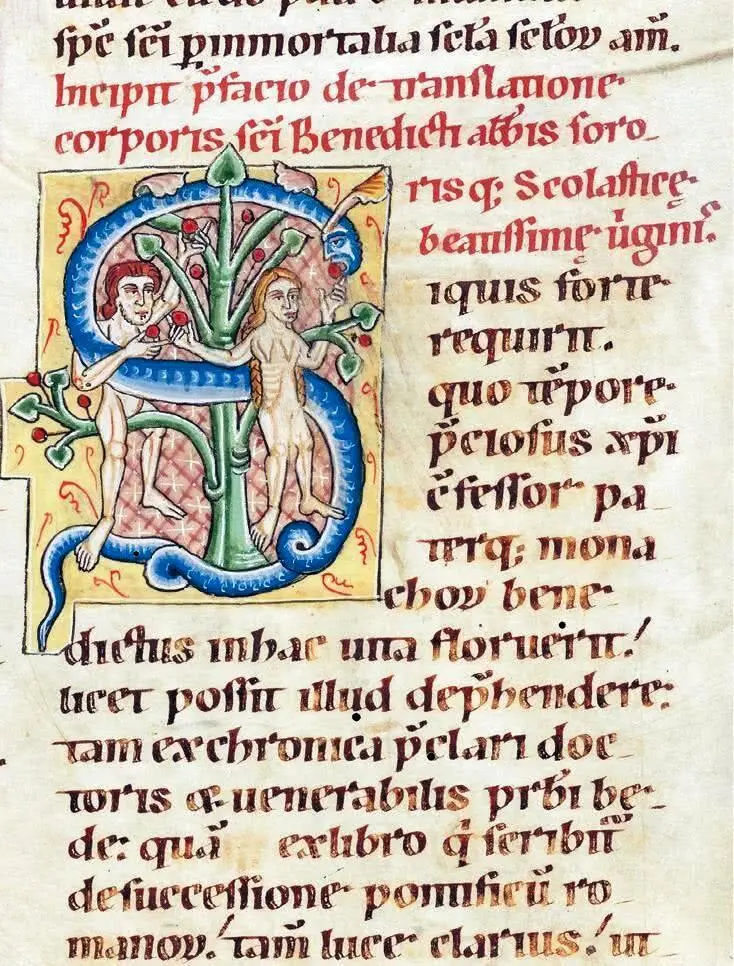 spē sc̄i p inmortalia sc̄la sc̄loꝝ am̄.
Incipit p̄facio de translatione
corporis sc̄i Benedicti abb̄is soro
risq; Scolastice
beatissimę ṽginis.
Siquis forte
requirit.
quo tēpore
p̄ciosus xp̄i
c̄fessor pa
terq; mona
choꝝ bene
dictus in hac uita floruerit!
licet possit illud dep̄hendere:
tam ex chronica p̄clari doc
toris & uenerabilis prb̄i be
de: quā ex libro q̄ scribit̄
de successione pontificū ro
manoꝝ! tam̄ luce clarius! ut